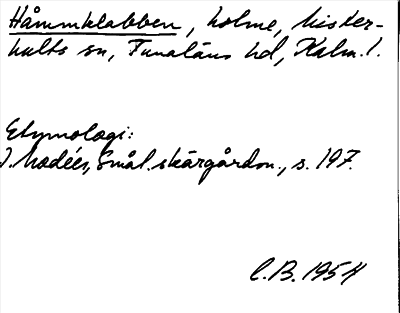 Håmmklabben, holme, Mister-
hults sn, Tunaläns hd, Kalm. l.
Etymologi:
J. Modéer, Smål. skärgårdsn., s. 197.
C.B. 1954